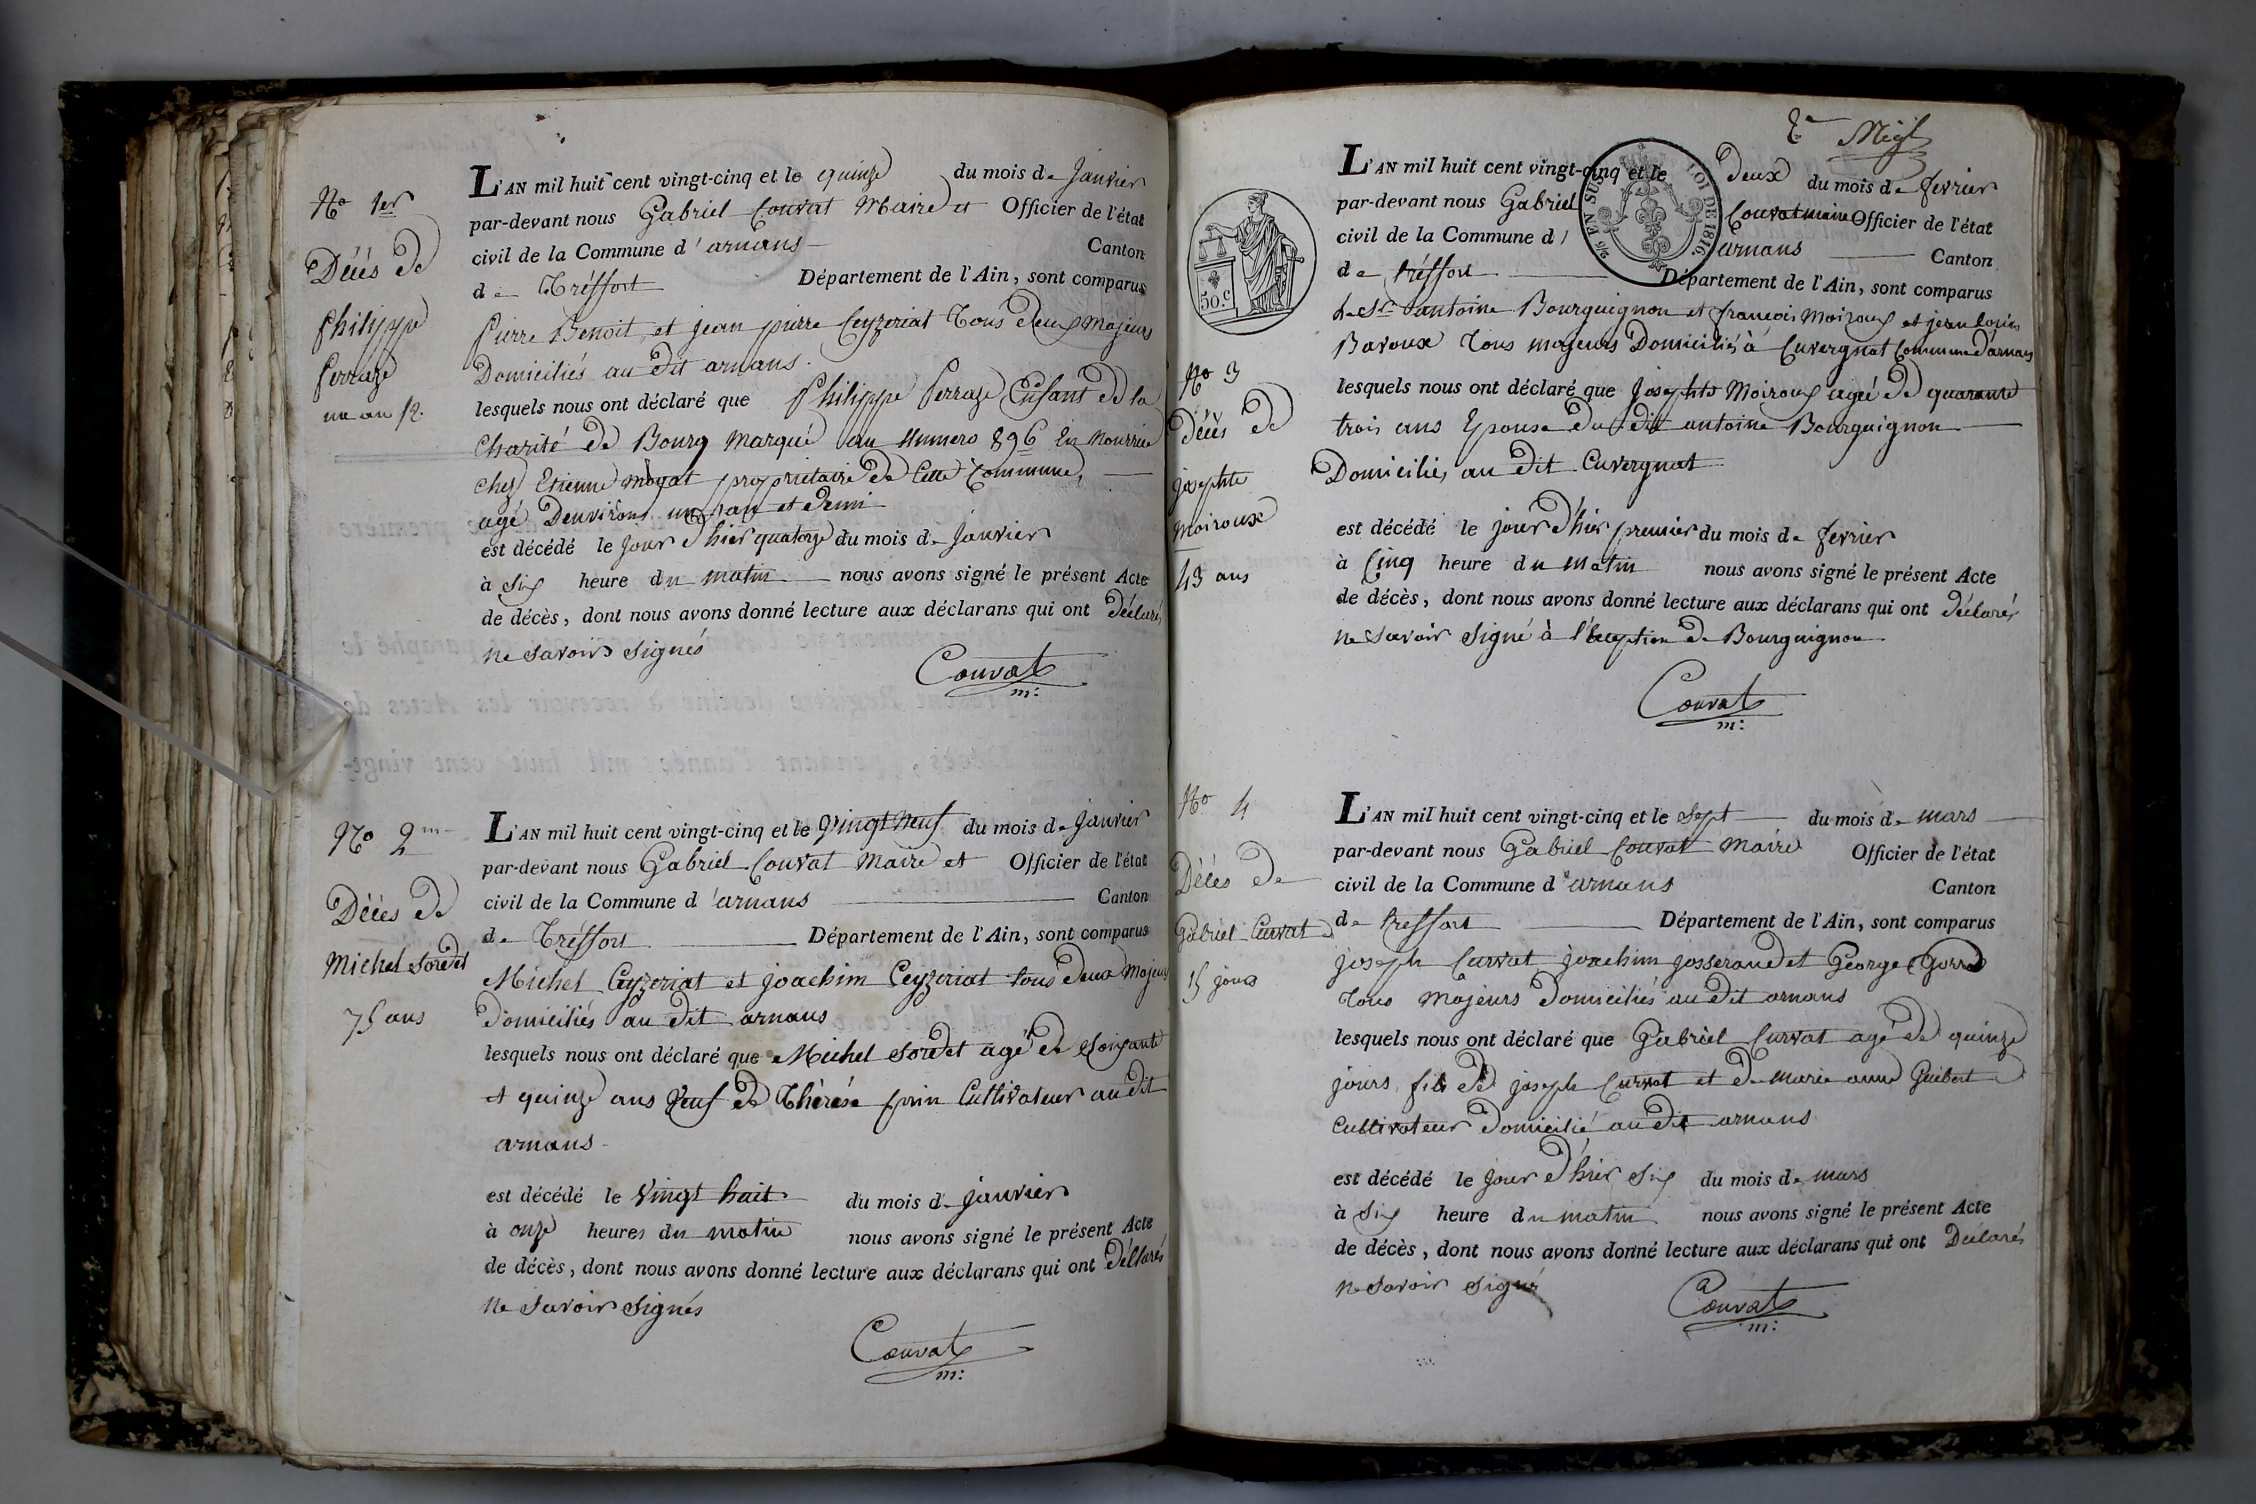 No 1er
Décés de
philippe
perraze
un an 1/2.
L'AN mil huit cent vingt-cinq et le quinze du mois de Janvier
par-devant nous Gabriel Couvat Maire et Officier de l'état
civil de la Commune d'arnans Canton
de Tréffort Département de l'Ain, sont comparus
Pierre Benoit et jean pierre Ceyzeriat Tous deux Majeurs
Domiciliés au dit arnans.
lesquels nous ont déclaré que Philippe Perraze Enfant de la
Charité de Bourg Marqué au Numero 896 En Nourrice
chez Etienne moyat propriétaire de Cette Commune,
agé Denvirons un an et Demi
est décédé le jour d'hier quatorze du mois de Janvier
à Six heure du matin nous avons signé le présent Acte
de décès, dont nous avons donné lecture aux déclarans qui ont Déclarés
ne savoir signés
Couvat
m:
No 2me
Décés de
Michel Soredet
75 ans
L'AN mil huit cent vingt-cinq et le Vingt Neuf du mois de Janvier
par-devant nous Gabriel Couvat Maire et Officier de l'état
civil de la Commune d'arnans Canton
de Tréffort Département de l'Ain, sont comparus
Michel Ceyzeriat et joachim Ceyzeriat tous deux Majeurs
Domiciliés au dit arnans
lesquels nous ont déclaré que Michel Soredet agé de Soixante
et quinze ans Veuf de Thérése prin Cultivateur au dit
arnans
est décédé le Vingt huit du mois de janvier
à onze heures du matin nous avons signé le présent Acte
de décès, dont nous avons donné lecture aux déclarans qui ont Déclarés
ne savoir signés
Couvat
m:
50.c
EN SUS
LOI DE 1816.
No 3
Décés de
josephte
moiroux
43 ans
L'AN mil huit cent vingt-cinq et le deux du mois de fevrier
par-devant nous Gabriel Couvat maire Officier de l'état
civil de la Commune d'arnans Canton
de tréffort Département de l'Ain, sont comparus
le Sr. antoine Bourguignon et françois Moiroux et jean louis
Bavoux Tous majeurs Domiciliés à Cuvergnat Commune d'arnans
lesquels nous ont déclaré que Josephte Moiroux agée de quarante
trois ans Epouse du dit antoine Bourguignon
Domiciliés au dit Cuvergnat
est décédé le jour d'hier premier du mois de fevrier
à Cinq heure du matin nous avons signé le présent Acte
de décès, dont nous avons donné lecture aux déclarans qui ont déclarés
ne savoir signé à l'éxception de Bourguignon
Couvat
m:
No 4
Décés de
Gabriel Curvat
15 jours
L'AN mil huit cent vingt-cinq et le Sept du mois de mars
par-devant nous Gabriel Couvat Maire Officier de l'état
civil de la Commune d'arnans Canton
de treffort Département de l'Ain, sont comparus
joseph Curvat joachim josserand et George Gorra
Tous Majeurs Domiciliés au dit arnans
lesquels nous ont déclaré que Gabriel Curvat agé de quinze
jours fils de joseph Curvat et de Marie anne Guibert
Cultivateur Domicilié au dit arnans
est décédé le jour d'hier Six du mois de mars
à Six heure du matin nous avons signé le présent Acte
de décès, dont nous avons donné lecture aux déclarans qui ont Déclarés
ne savoir signé
Couvat
m: